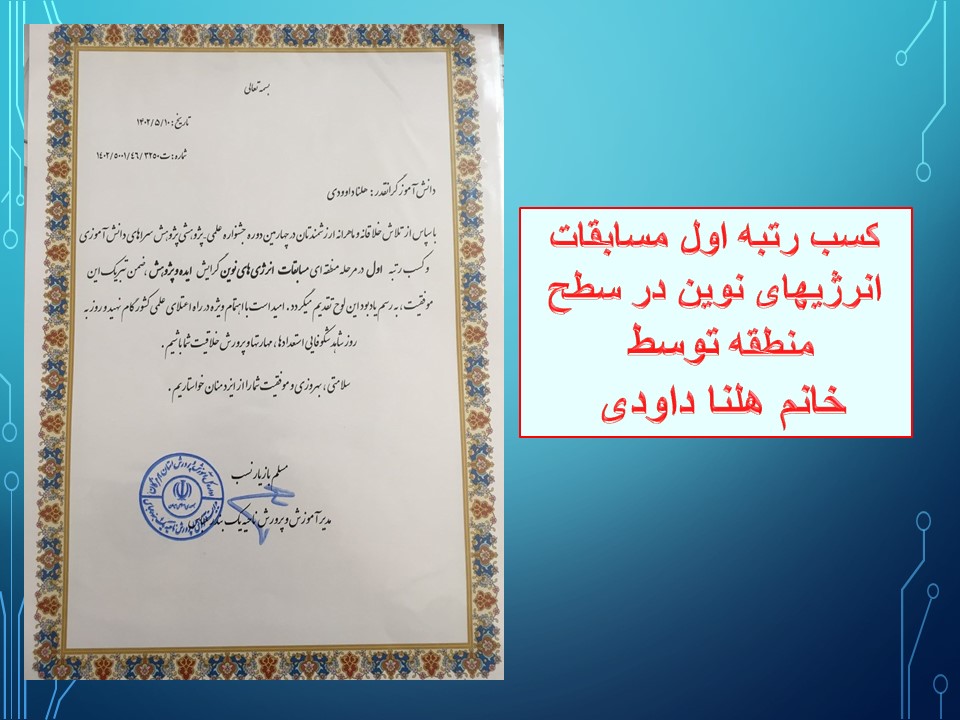 بسمه تعالی
تاریخ: ۱۴۰۲/۵/۱۰
شماره: ت ۱۴۰۲/۵۰۰۱/۴۶/۳۲۵۰
دانش آموز گرانقدر: هلنا داوودی
با سپاس از تلاش خلاقانه و ماهرانه ارزشمندتان در چهارمین دوره جشنواره علمی_پژوهشی پژوهش سراهای دانش آموزی
و کسب رتبه اول در مرحله منطقه ای مسابقات انرژی های نوین گرایش ایده و پژوهش، ضمن تبریک این
موفقیت، به رسم یادبود این لوح تقدیم میگردد. امید است با اهتمام ویژه در راه اعتلای علمی کشور گام نهید و روز به
روز شاهد شکوفایی استعدادها، مهارتها و پرورش خلاقیت شما باشیم.
سلامتی، بهروزی و موفقیت شما را از ایزد منان خواستاریم.
مسلم بازیار نسب
مدیر آموزش و پرورش ناحیه یک بندرعباس
کسب رتبه اول مسابقات
انرژیهای نوین در سطح
منطقه توسط
خانم هلنا داودی